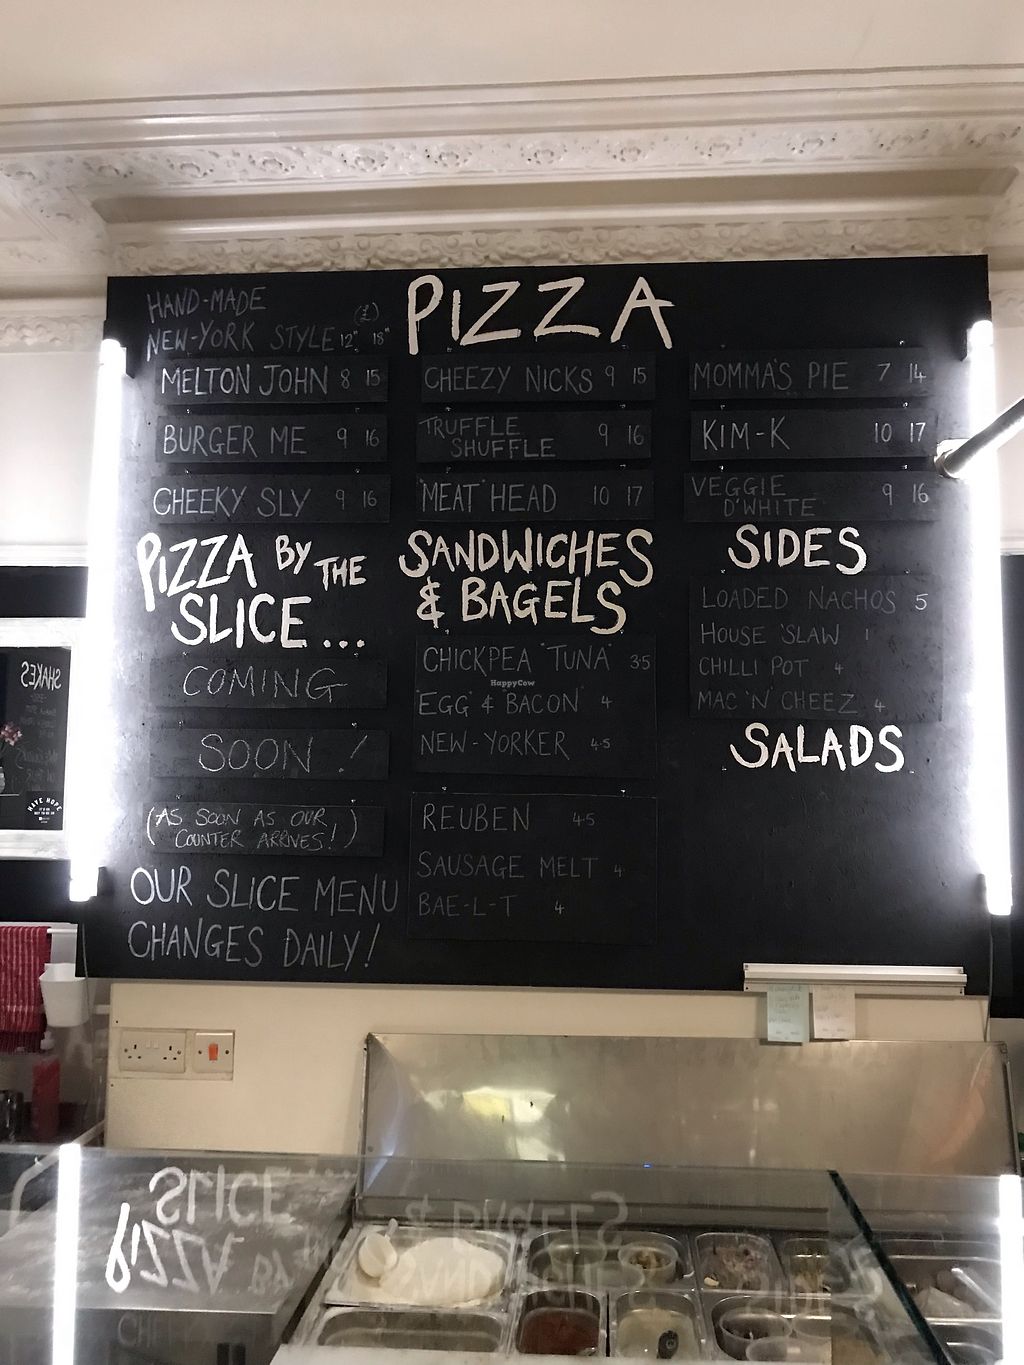 PIZZA
HAND-MADE
NEW-YORK STYLE 12" 18"
(£)
MELTON JOHN 8 15
BURGER ME 9 16
CHEEKY SLY 9 16
CHEEZY NICKS 9 15
TRUFFLE
SHUFFLE 9 16
"MEAT" HEAD 10 17
MOMMA'S PIE 7 14
KIM-K 10 17
VEGGIE
D'WHITE 9 16
PIZZA BY THE
SLICE...
COMING
SOON!
(AS SOON AS OUR
COUNTER ARRIVES!)
OUR SLICE MENU
CHANGES DAILY!
SANDWICHES
& BAGELS
CHICKPEA "TUNA" 3.5
"EGG" & BACON 4
NEW-YORKER 4.5
REUBEN 4.5
SAUSAGE MELT 4
BAE-L-T 4
SIDES
LOADED NACHOS 5
HOUSE 'SLAW 1
CHILLI POT 4
MAC 'N' CHEEZ 4
SALADS
HappyCow
SHAKES
HAVE HOPE
SLICE
PIZZA BY THE
& BAGELS
SANDWICHES